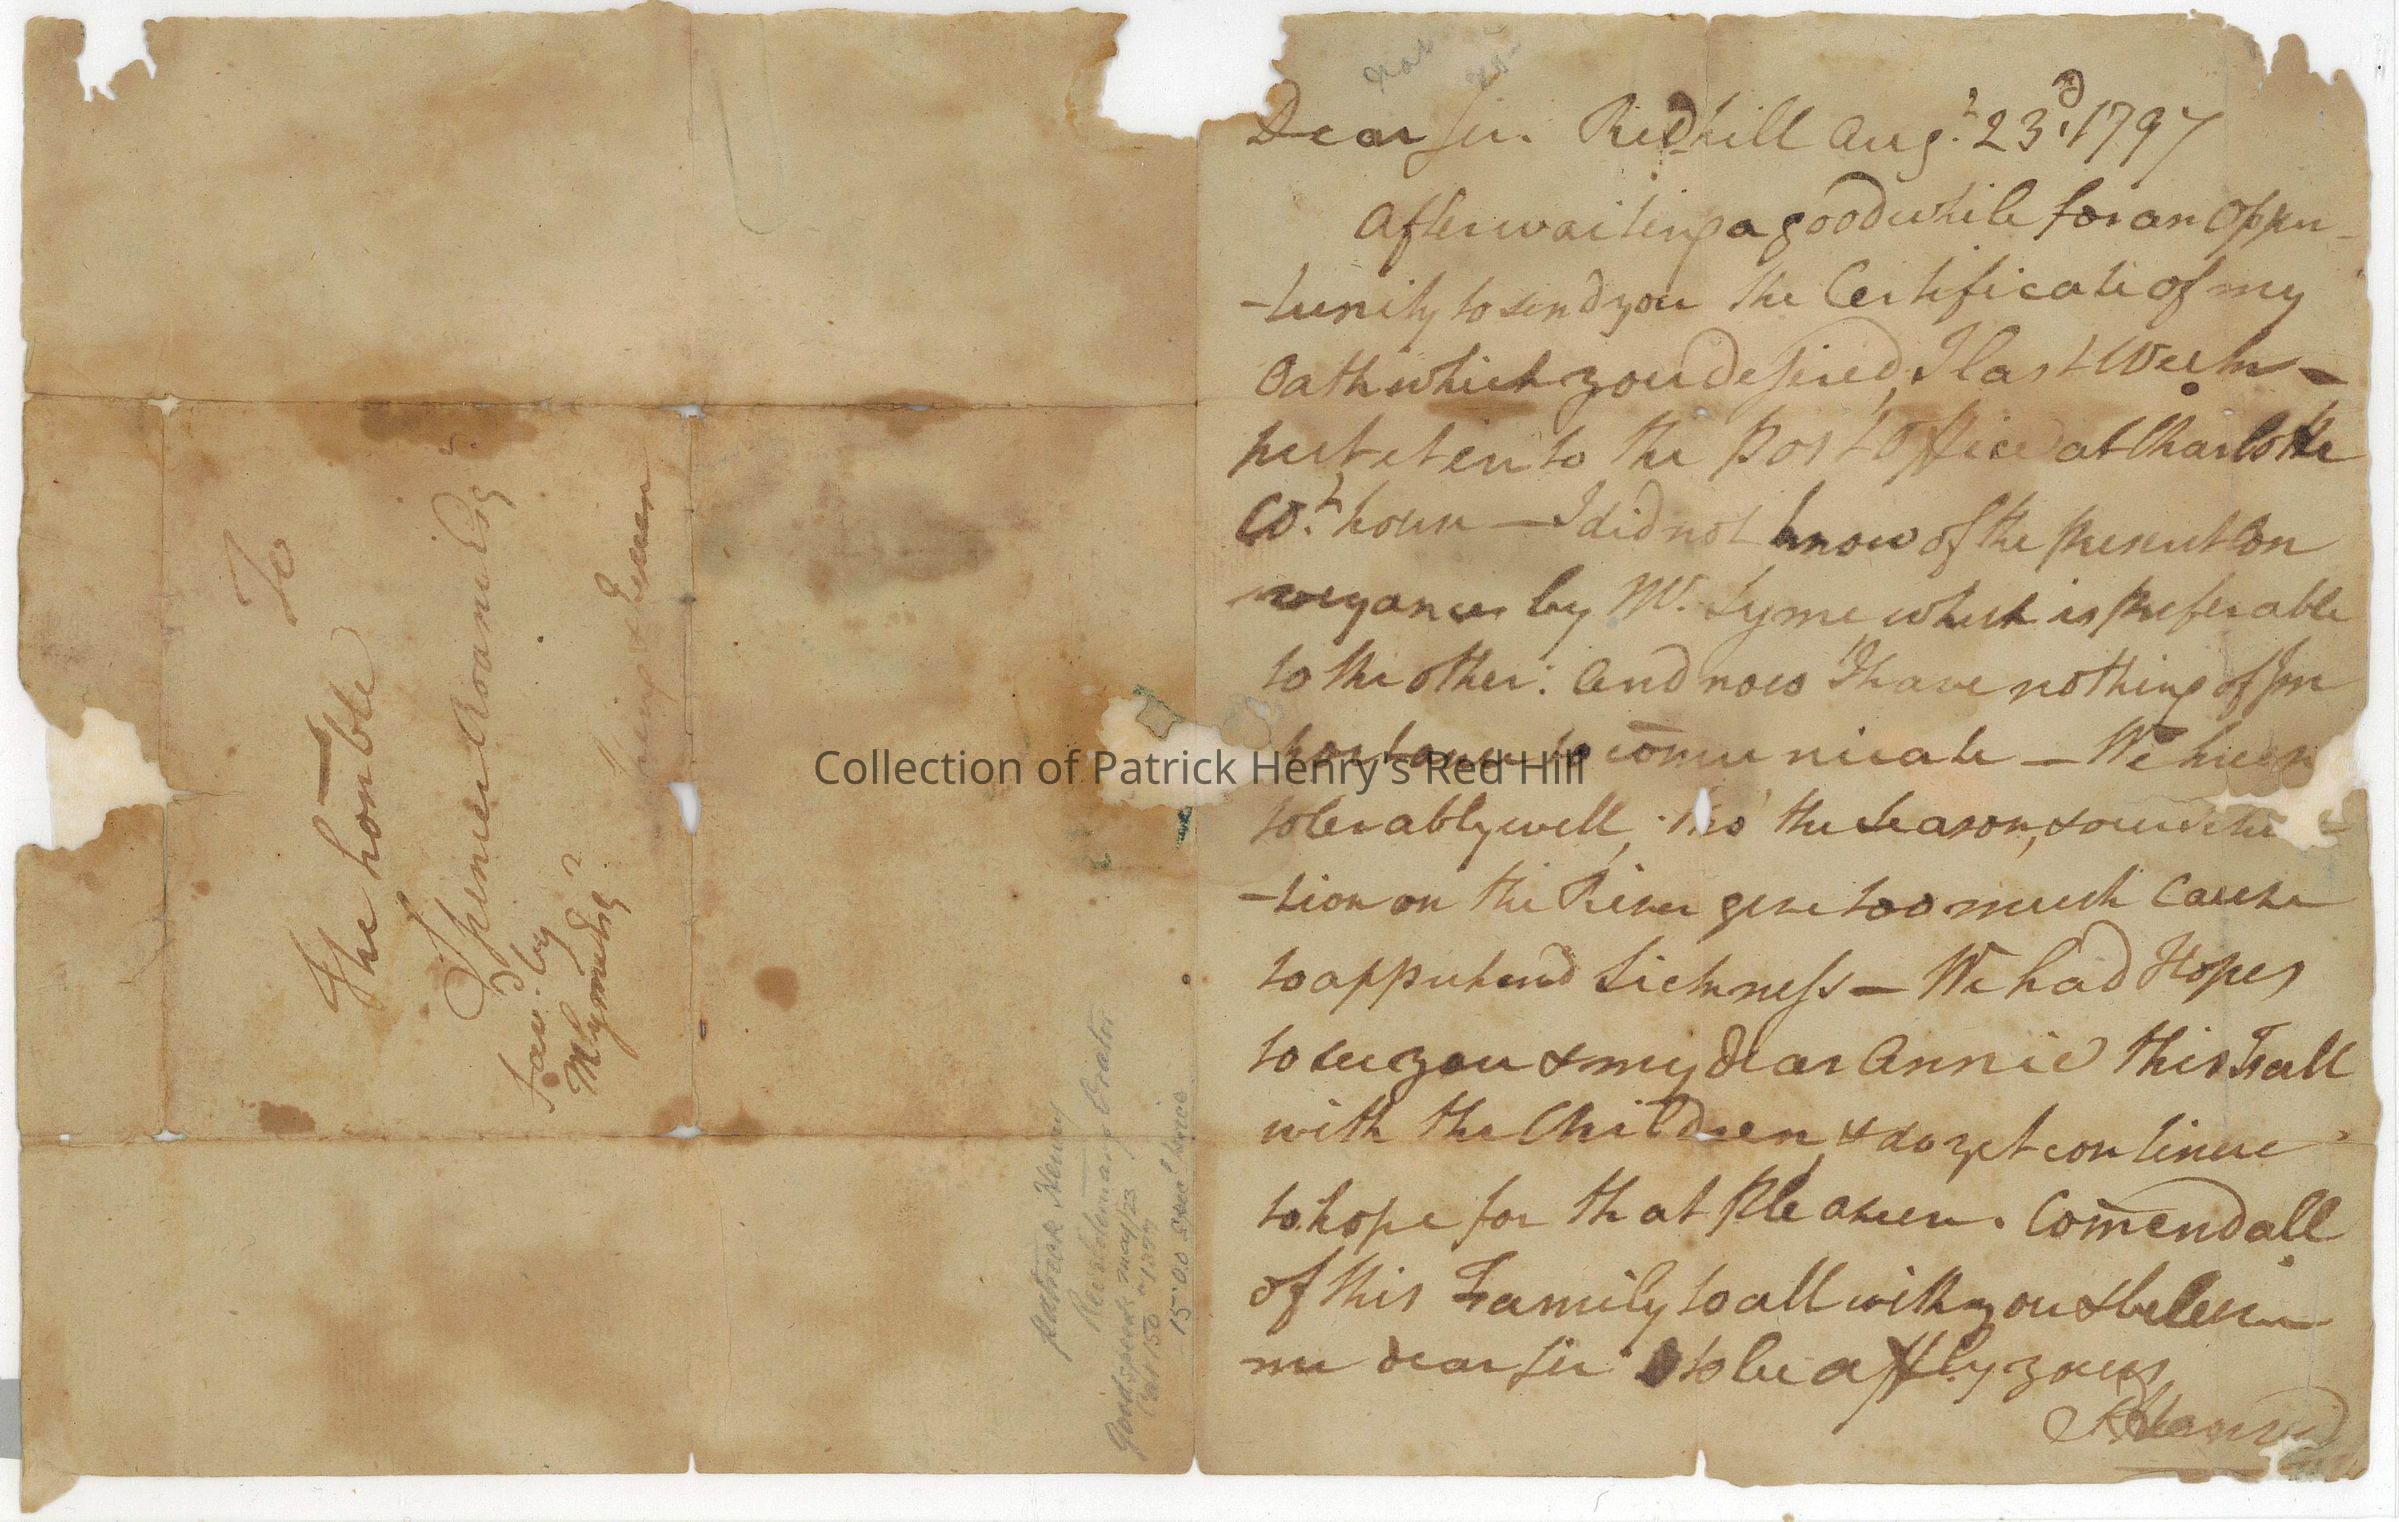 Dear Sir. Redhill Aug.t 23.d 1797
After waiting a good while for an Oppu
-tunity to send you the Certificate of my
Oath which you desired, I last Week —
put it into the post Office at Charlotte
Co.t house — I did not know of the present Con
veyance by Mr. Lyme which is preferable
to the other: And now I have nothing of Im
portance to comunicate — We keep
tolerably well, tho' the Season, & our Situa
-tion on the River give too much Cause
to apprehend Sickness — We had Hopes
to see you & my dear Annie this Fall
with the Children, & do yet continue
to hope for that Pleasure. Comend all
of this Family to all with you & believe
me dear Sir to be affly yours
P Henry
To
The honble
Spencer Roane Esq
Fav.d by
M Lyme Esq.r
King & Queen
Patrick Henry
Revolutionary Orator
Goodspeed's May/23
Cat 150 # 1377
15.00 Special price
Collection of Patrick Henry's Red Hill